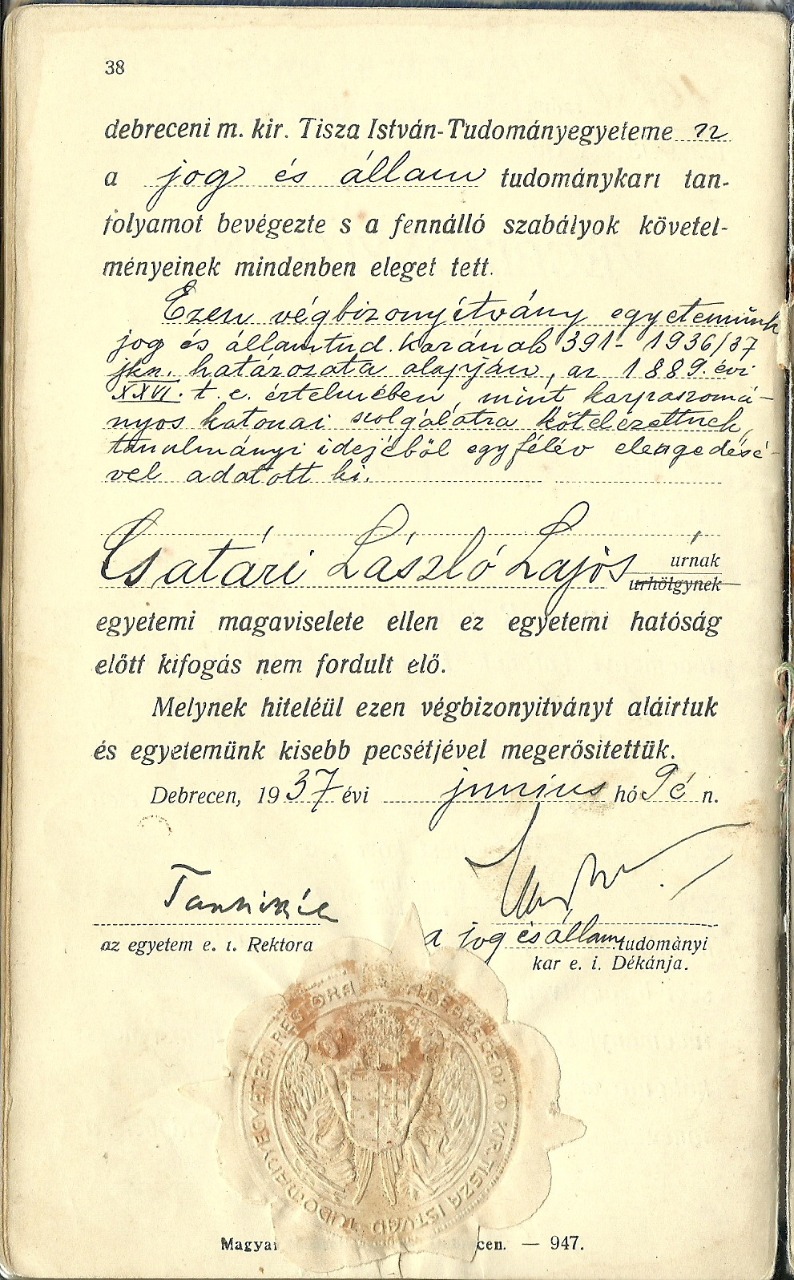 38
debreceni m. kir. Tisza István-Tudományegyeteme n
a jog és állam tudománykari tan-
folyamot bevégezte s a fennálló szabályok követel-
ményeinek mindenben eleget tett.
Ezen végbizonyítvány egyetemünk
jog és államtud. karának 391- 1936/37
jkn. határozata alapján, az 1889. évi
XXVI. t. c. értelmében, mint karpaszomá-
nyos katonai szolgálatra kötelezettnek,
tanulmányi idejéből egy félév elengedésé-
vel adatott ki.
Csatári László Lajos urnak
urhölgynek
egyetemi magaviselete ellen ez egyetemi hatóság
előtt kifogás nem fordult elő.
Melynek hiteléül ezen végbizonyitványt aláirtuk
és egyetemünk kisebb pecsétjével megerősitettük.
Debrecen, 1937 évi junius hó 9é n.
az egyetem e. i. Rektora
a jog és állam tudományi
kar e. i. Dékánja.
A DEBRECENI M. KIR. TISZA ISTVÁN TUDOMÁNYEGYETEM REKTORA
Magyar cen. — 947.